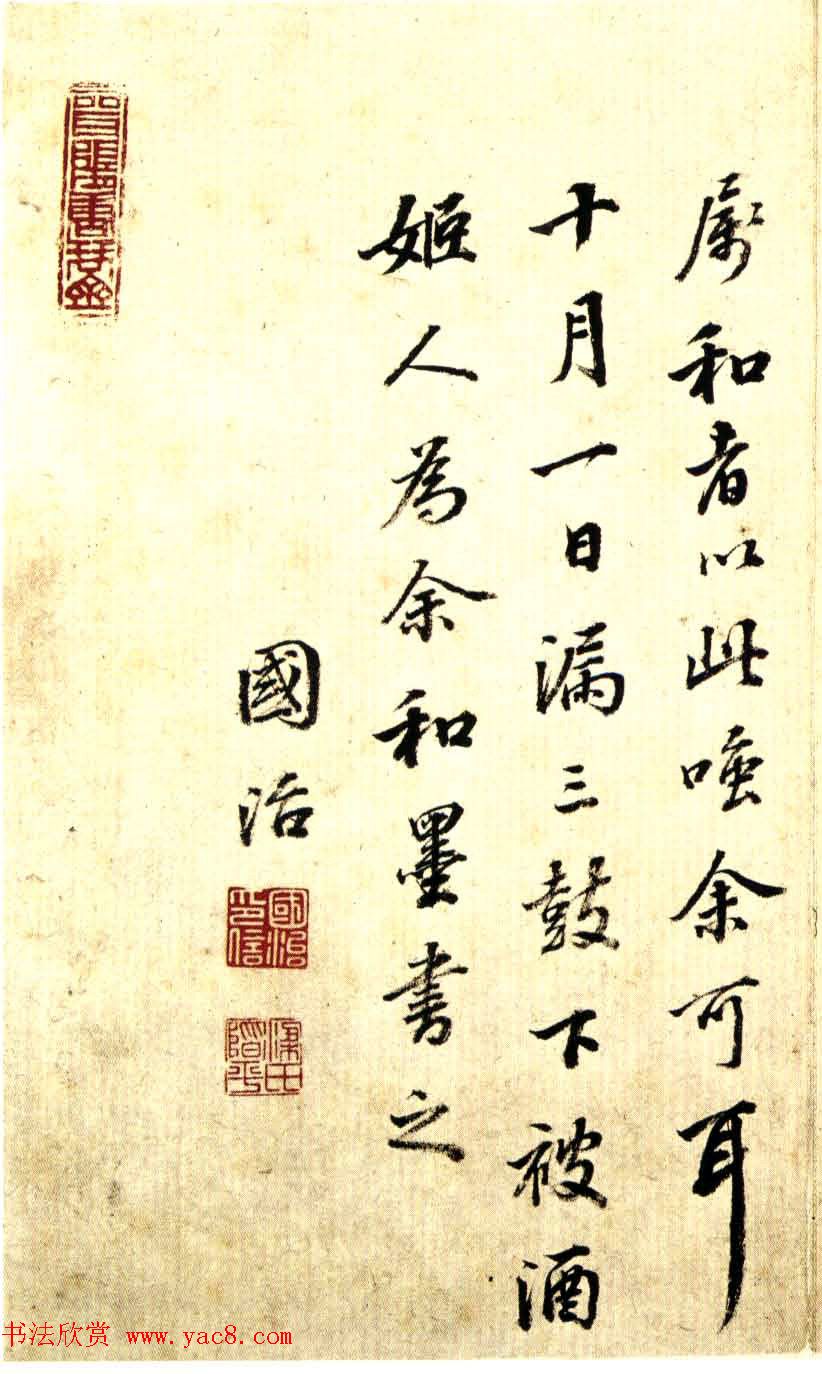 屬和者以此嗤余可耳
十月一日漏三鼓下被酒
姬人為余和墨書之
國治
國治印信
書法欣赏 www.yac8.com